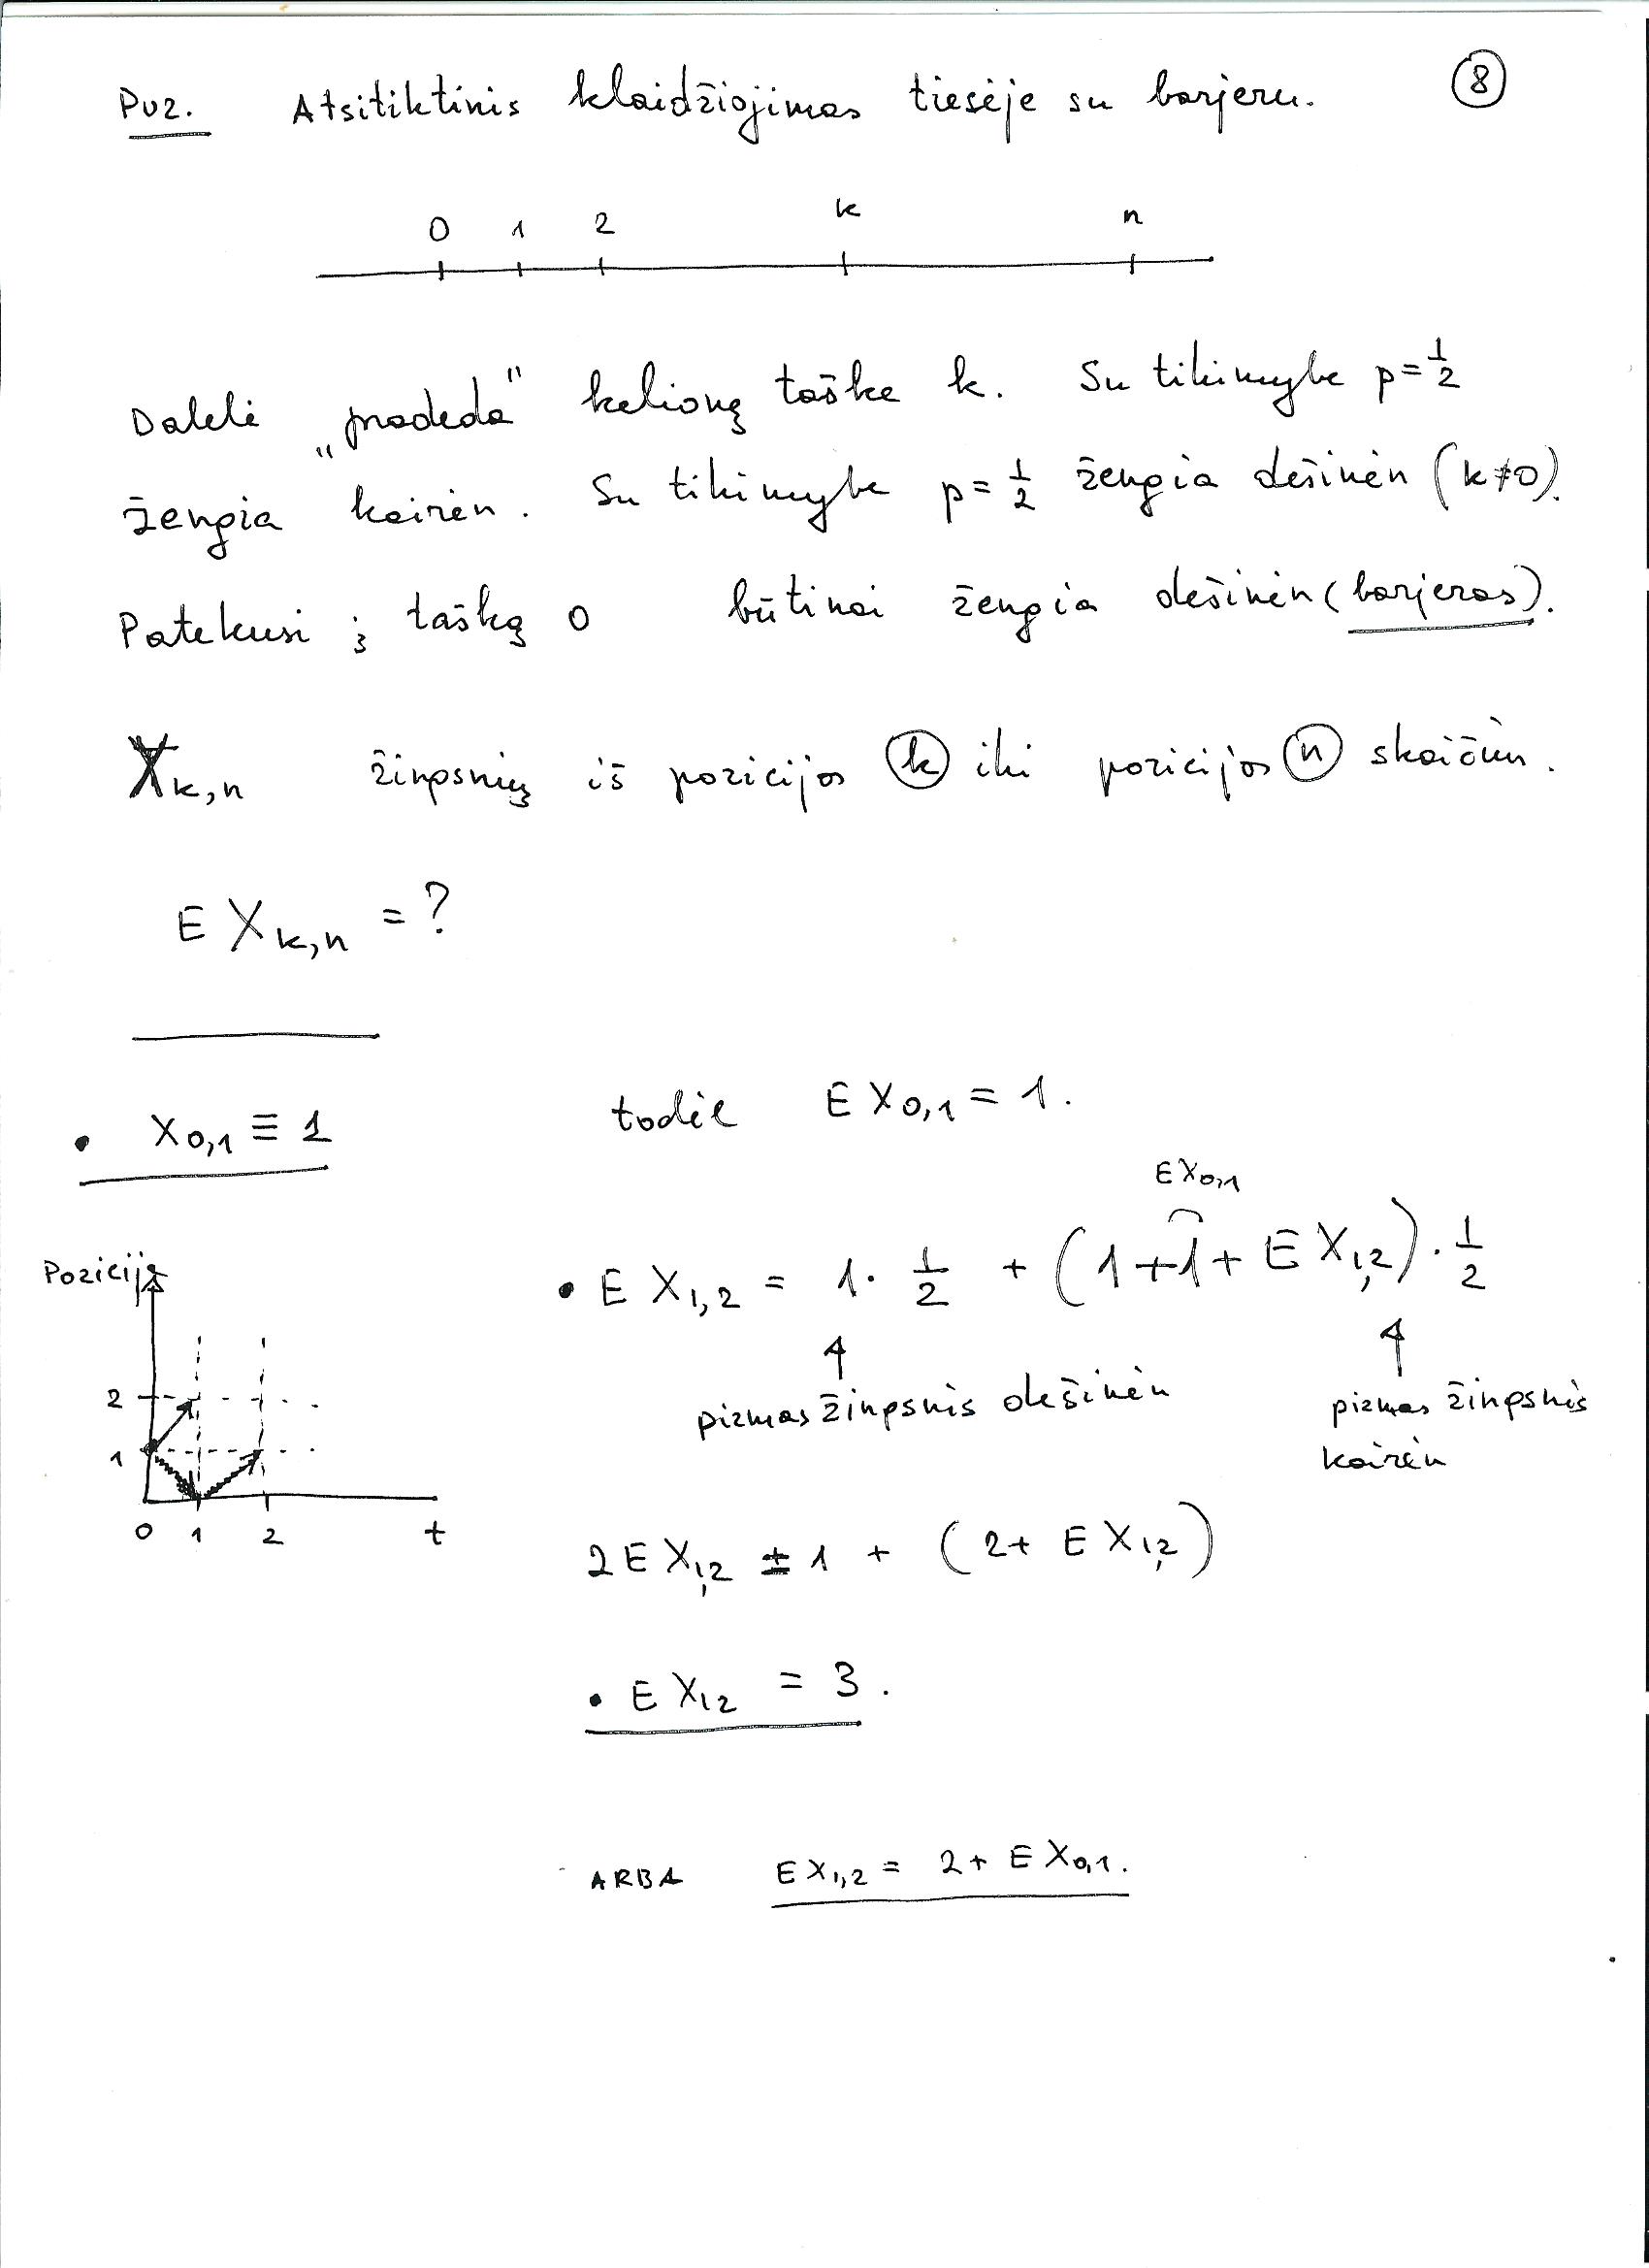 Pvz. Atsitiktinis klaidžiojimas tiesėje su barjeru. 8
0 1 2 k n
Dalelė „pradeda“ kelionę taške k. Su tikimybe p = 1/2
žengia kairėn. Su tikimybe p = 1/2 žengia dešinėn (k≠0).
Patekusi į tašką 0 būtinai žengia dešinėn (barjeras).
X_{k,n} žingsnių iš pozicijos k iki pozicijos n skaičius.
E X_{k,n} = ?
• X_{0,1} ≡ 1 todėl E X_{0,1} = 1.
E X_{0,1}
• E X_{1,2} = 1 · 1/2 + (1 + 1 + E X_{1,2}) · 1/2
pirmas žingsnis dešinėn
pirmas žingsnis
kairėn
Pozicija
2
1
0 1 2 t
2 E X_{1,2} = 1 + (2 + E X_{1,2})
• E X_{12} = 3.
ARBA E X_{1,2} = 2 + E X_{0,1}.